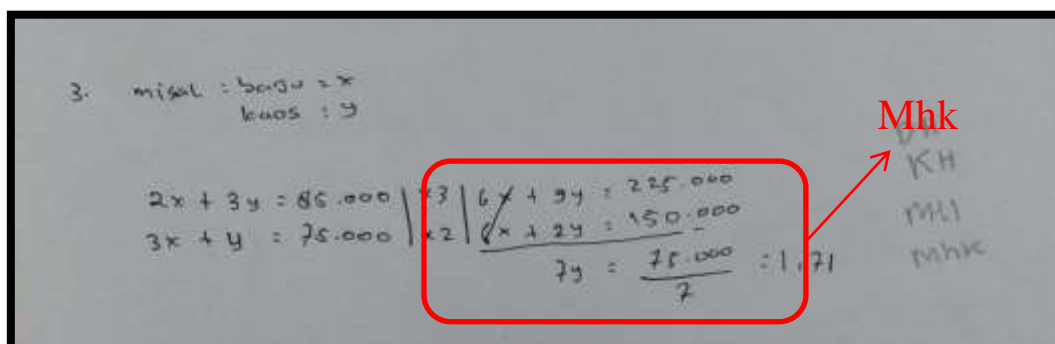 3. misal : baju = x
kaos : y
Mhk
KH
2x + 3y = 85.000 | x3 | 6x + 9y = 225.000
3x + y = 75.000 | x2 | 6x + 2y = 150.000
MHI
7y = 75.000 / 7 = 1,71
Mhk